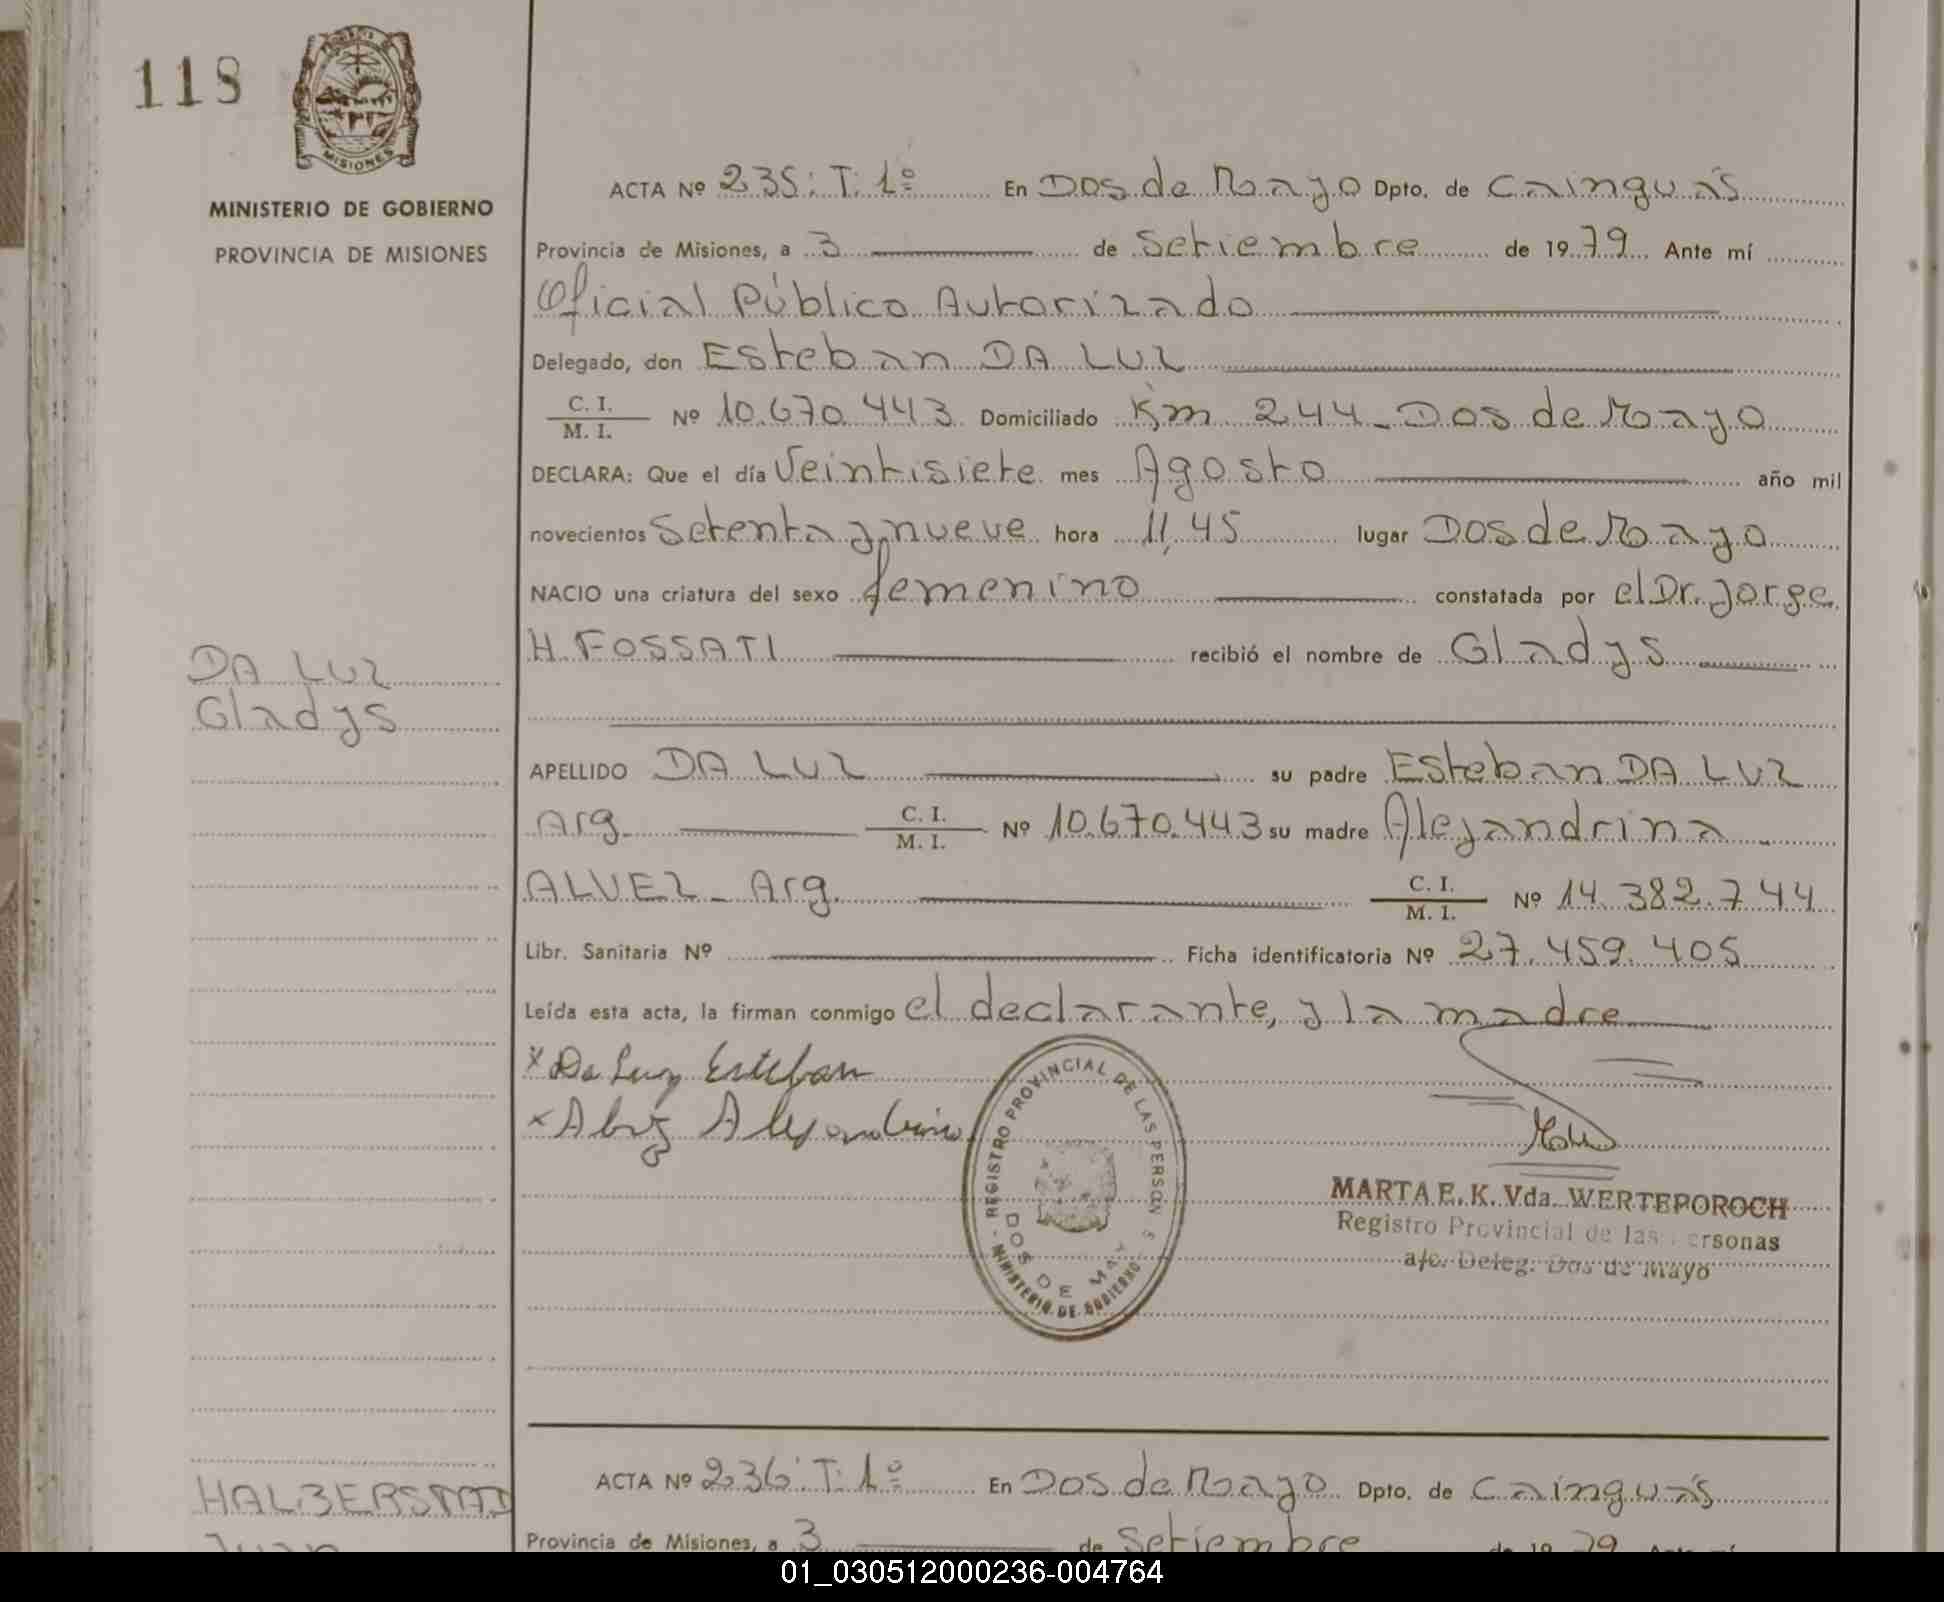 118
MISIONES
MINISTERIO DE GOBIERNO
PROVINCIA DE MISIONES
ACTA Nº 235: T: 1º En Dos de Mayo Dpto. de Cainguás
Provincia de Misiones, a 3 de Setiembre de 1979 Ante mí
Oficial Público Autorizado
Delegado, don Esteban DA LUZ
C. I.
M. I. Nº 10.670.443 Domiciliado Km 244 - Dos de Mayo
DECLARA: Que el día Veintisiete mes Agosto año mil
novecientos Setenta y nueve hora 11,45 lugar Dos de Mayo
NACIO una criatura del sexo femenino constatada por el Dr. Jorge
H. FOSSATI recibió el nombre de Gladys
DA LUZ
Gladys
APELLIDO DA LUZ su padre Esteban DA LUZ
Arg. C. I.
M. I. Nº 10.670.443 su madre Alejandrina
ALVEZ - Arg. C. I.
M. I. Nº 14.382.744
Libr. Sanitaria Nº Ficha identificatoria Nº 27.459.405
Leída esta acta, la firman conmigo el declarante, y la madre
x Da Luz Esteban
x Alvez Alejandrina
REGISTRO PROVINCIAL DE LAS PERSONAS
DOS DE MAYO
MINISTERIO DE GOBIERNO
MARTA E. K. Vda. WERTEPOROCH
Registro Provincial de las Personas
a/c. Deleg. Dos de Mayo
ACTA Nº 236: T: 1º En Dos de Mayo Dpto. de Cainguás
HALBERSTAD
Juan
Provincia de Misiones, a 3 de Setiembre de 1979 Ante mí
01_030512000236-004764